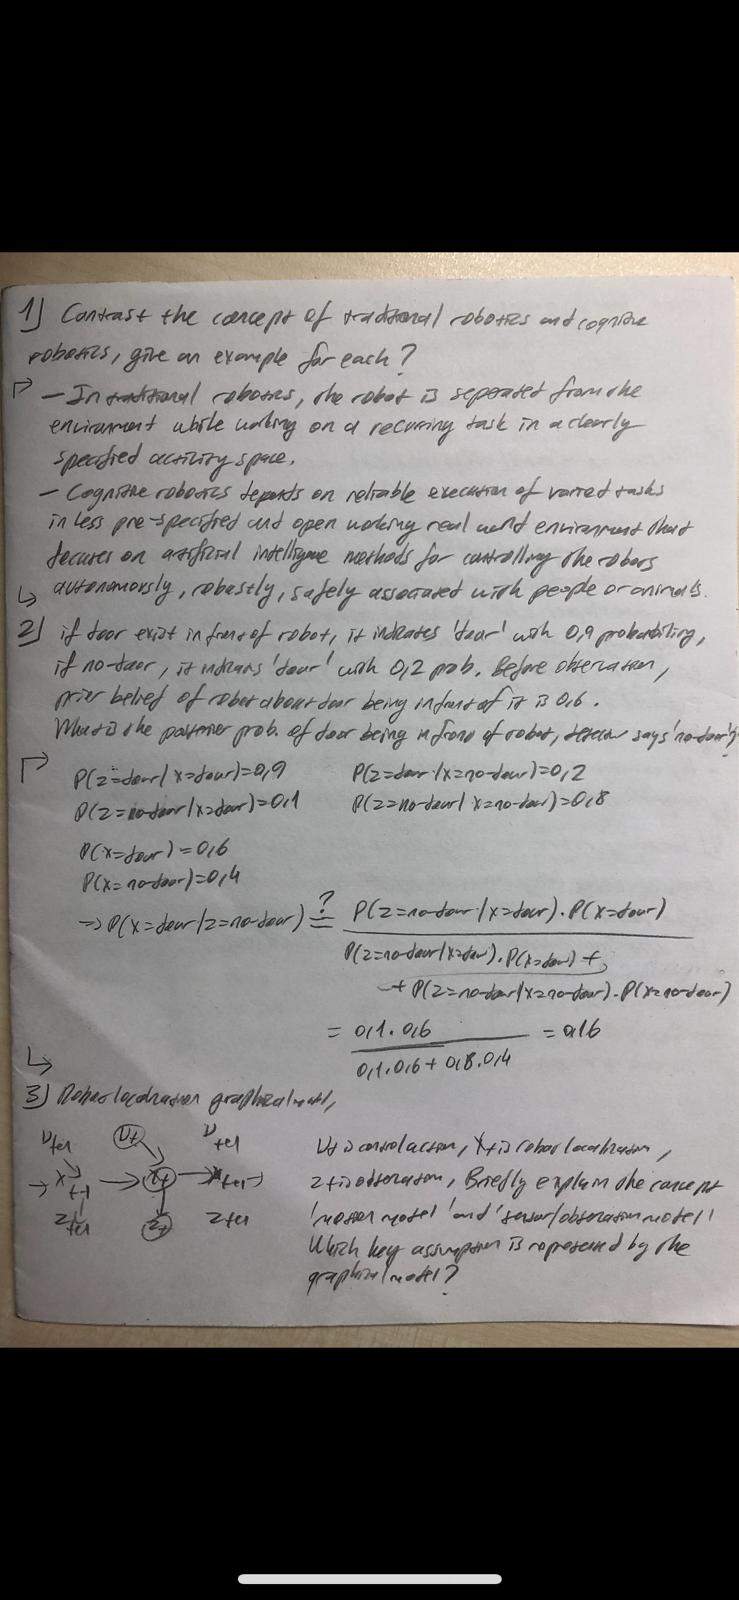 1) Contrast the concept of traditional robotics and cognitive
robotics, give an example for each?
- In traditional robotics, the robot is seperated from the
environment while working on a recurring task in a clearly
specified activity space.
- Cognitive robotics depends on reliable execution of varied tasks
in less pre-specified and open working real world environment that
focuses on artificial intelligence methods for controlling the robots
autonomously, robustly, safely associated with people or animals.
2) if door exist in front of robot, it indicates 'door' with 0,9 probability,
if no-door, it indicates 'door' with 0,2 prob. Before observation,
prior belief of robot about door being in front of it is 0,6.
What is the posterior prob. of door being in front of robot, says 'no-door'?
P(z=door/x=door)=0,9 P(z=door/x=no-door)=0,2
P(z=no-door/x=door)=0,1 P(z=no-door/x=no-door)=0,8
P(x=door)=0,6
P(x=no-door)=0,4
→ P(x=door/z=no-door) =? P(z=no-door/x=door).P(x=door)
P(z=no-door/x=door).P(x=door) +
+ P(z=no-door/x=no-door).P(x=no-door)
= 0,1.0,6 = 0,16
0,1.0,6 + 0,8.0,4
3) Robot localization graphical model,
Ut+1 Ut Ut+1
→ Xt-1 → Xt → Xt+1 →
Zt+1 Zt Zt+1
Ut is control action, Xt is robot localization,
Zt is observation, Briefly explain the concept
'motion model' and 'sensor/observation model'
Which key assumption is represented by the
graphical model?